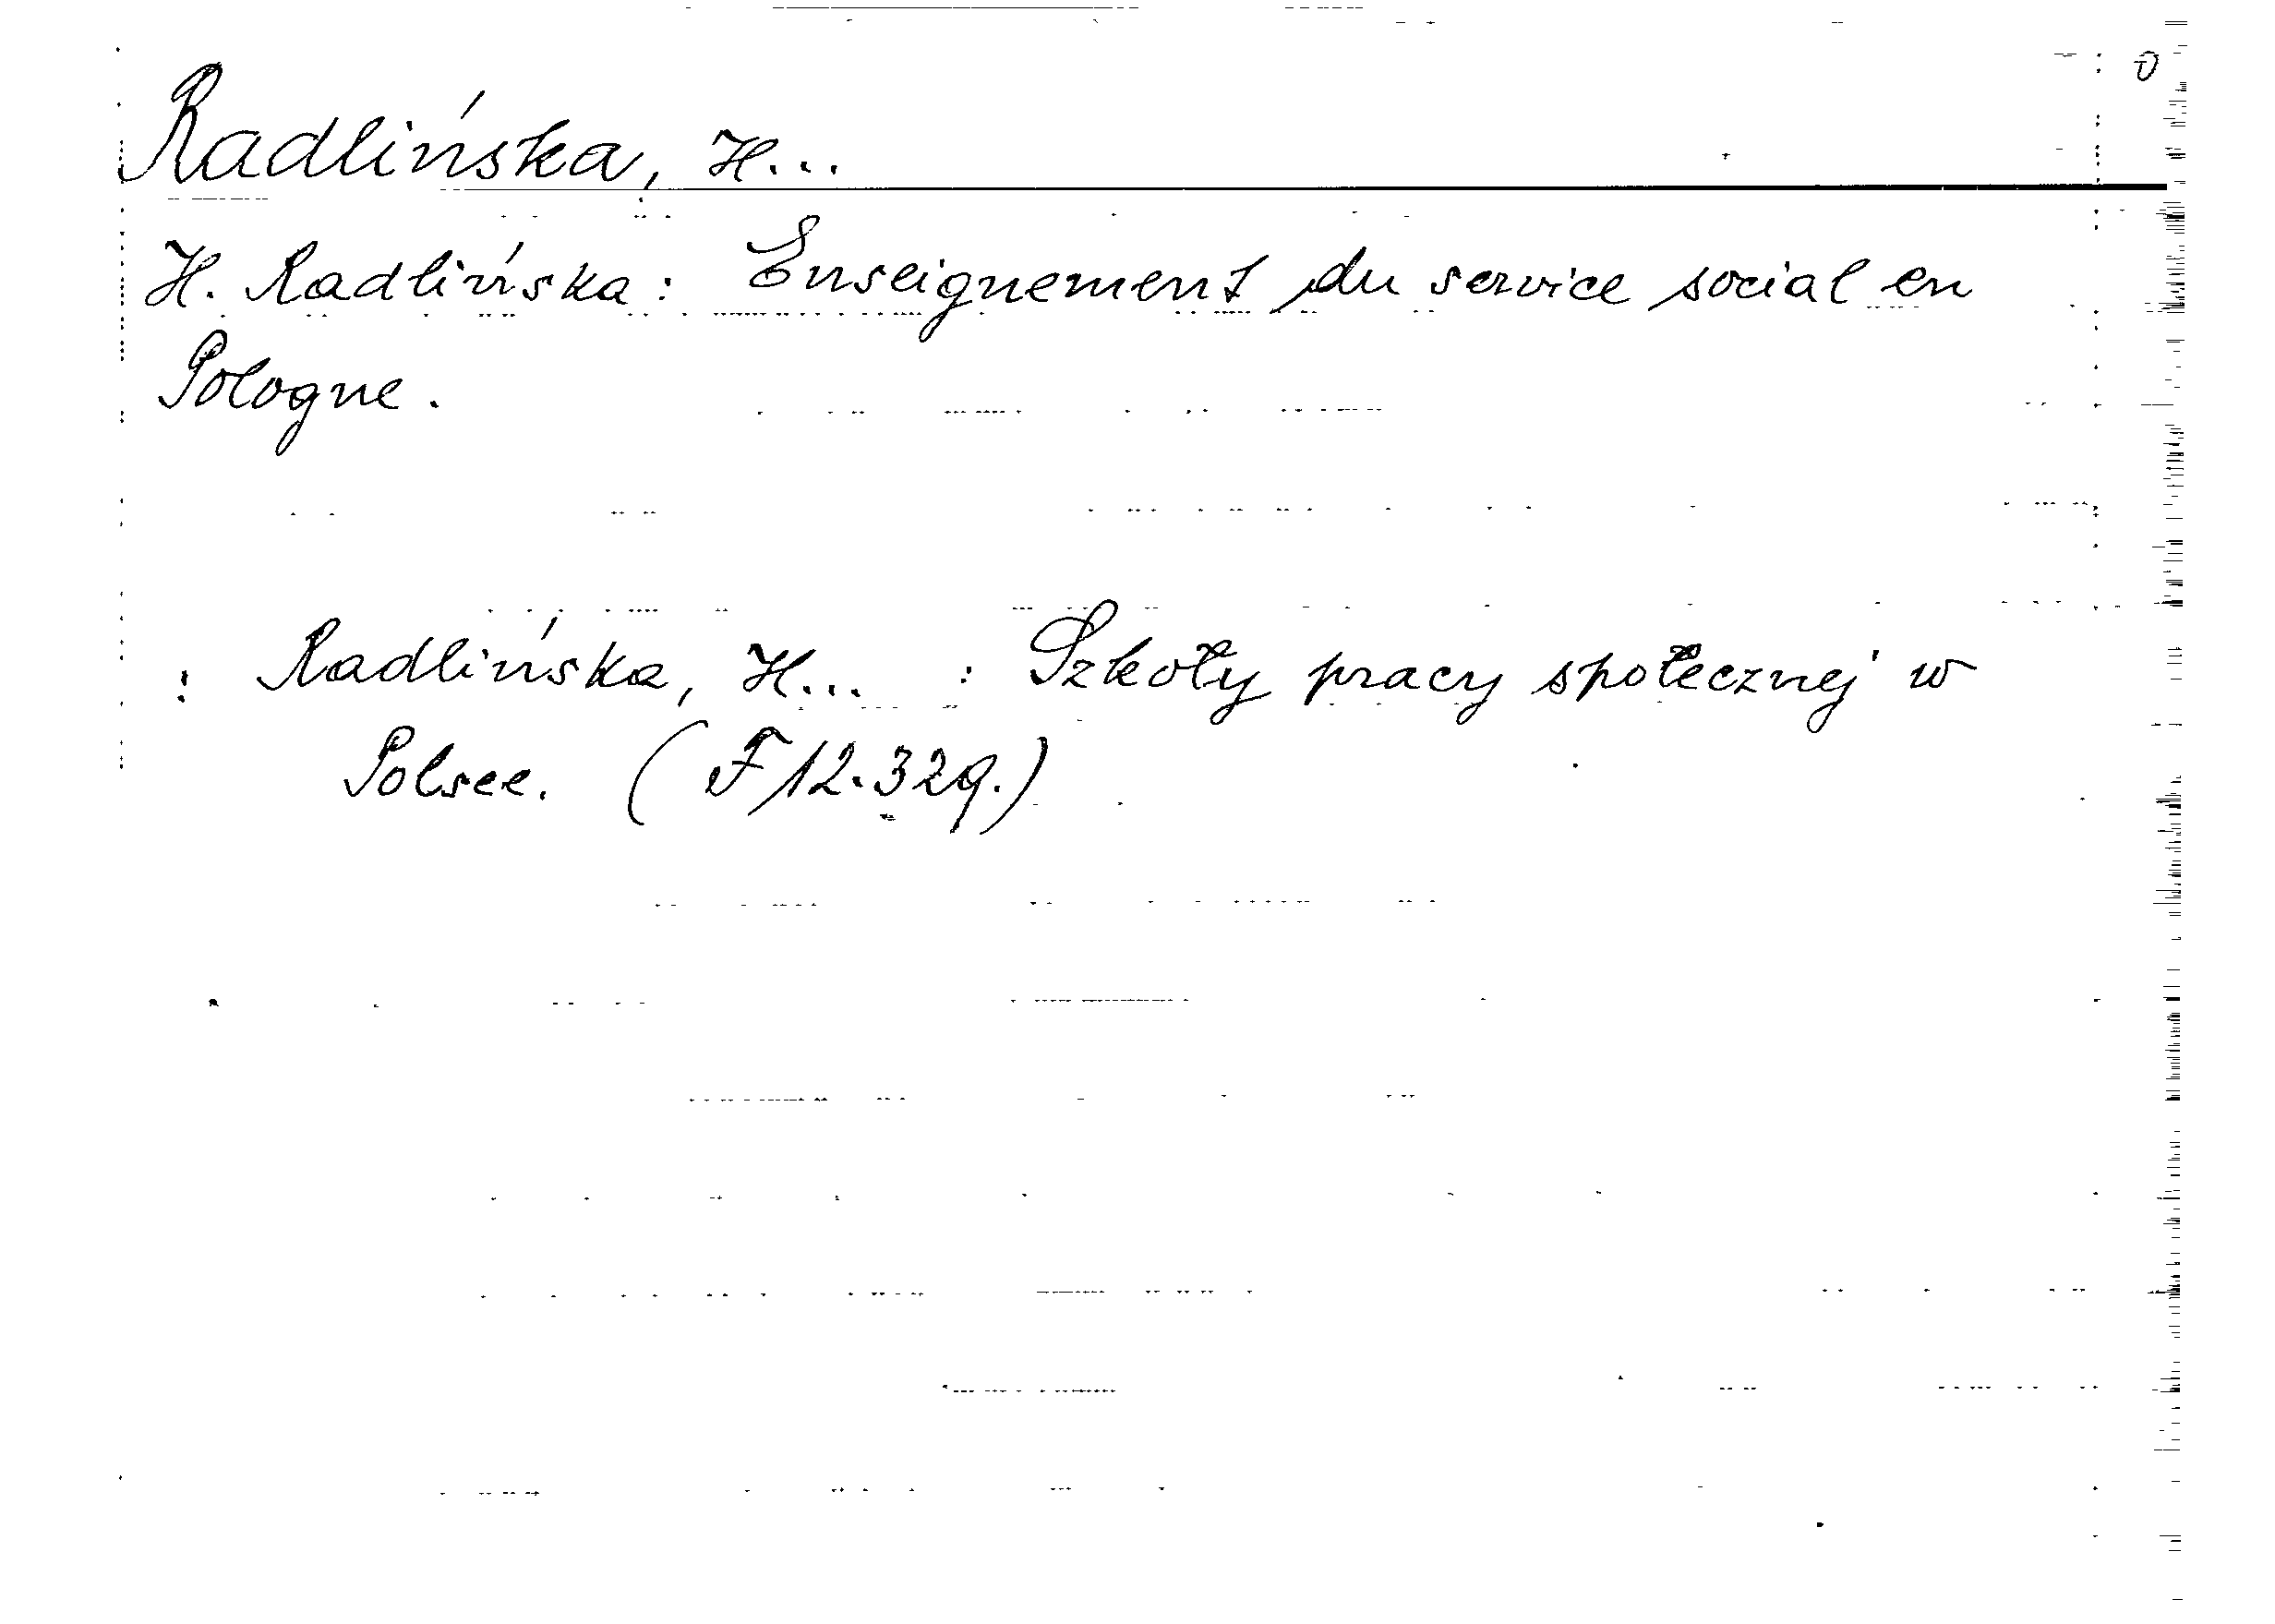 Radlińska, H...
H. Radlińska: Enseignement du service social en
Pologne.
: Radlińska, H... : Szkoły pracy społecznej w
Polsce. (F 12.329.)